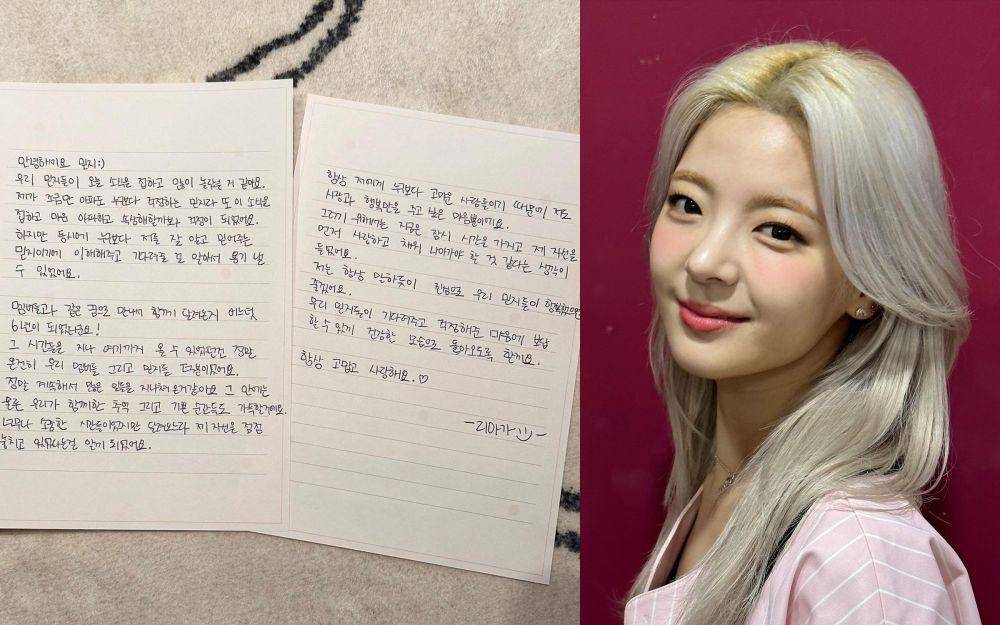 안녕하세요 믿지:)
우리 믿지들이 오늘 소식을 접하고 많이 놀랐을 거 같아요.
제가 조금만 아파도 누구보다 걱정하는 믿지라 또 이 소식을
접하고 마음 아파하고 속상해할까봐 걱정이 되었어요.
하지만 동시에 누구보다 저를 잘 알고 믿어주는
믿지이기에 이해해주고 기다려줄 걸 알아서 용기 낼
수 있었어요.
멤버들과 같은 꿈으로 만나게 함께 달려온지 어느덧
6년이 되었는데요!
그 시간들을 지나 여기까지 올 수 있었던건 정말
온전히 우리 멤버들 그리고 믿지들 덕분이었어요.
정말 계속해서 많은 일들을 지나쳐온거같아요 그 안에는
물론 우리가 함께한 추억 그리고 기쁜 순간들도 가득할거예요.
너무나 소중한 시간들이었지만 달려오느라 제 자신을 점점
놓치고 있었다는걸 알게 되었어요.
항상 저에게 누구보다 고마운 사람들이기 때문에 저도
사랑과 행복만을 주고 싶은 마음뿐이에요.
그러기 위해서는 지금은 잠시 시간을 가지고 제 자신을
먼저 사랑하고 채워 나아가야 할 것 같다는 생각이
들었어요.
저는 항상 말하듯이 진심으로 우리 믿지들이 행복했으면
좋겠어요.
우리 믿지들이 기다려주고 걱정해준 마음에 보답
할 수 있게 건강한 모습으로 돌아오도록 할게요.
항상 고맙고 사랑해요.♡
-리아가☺-